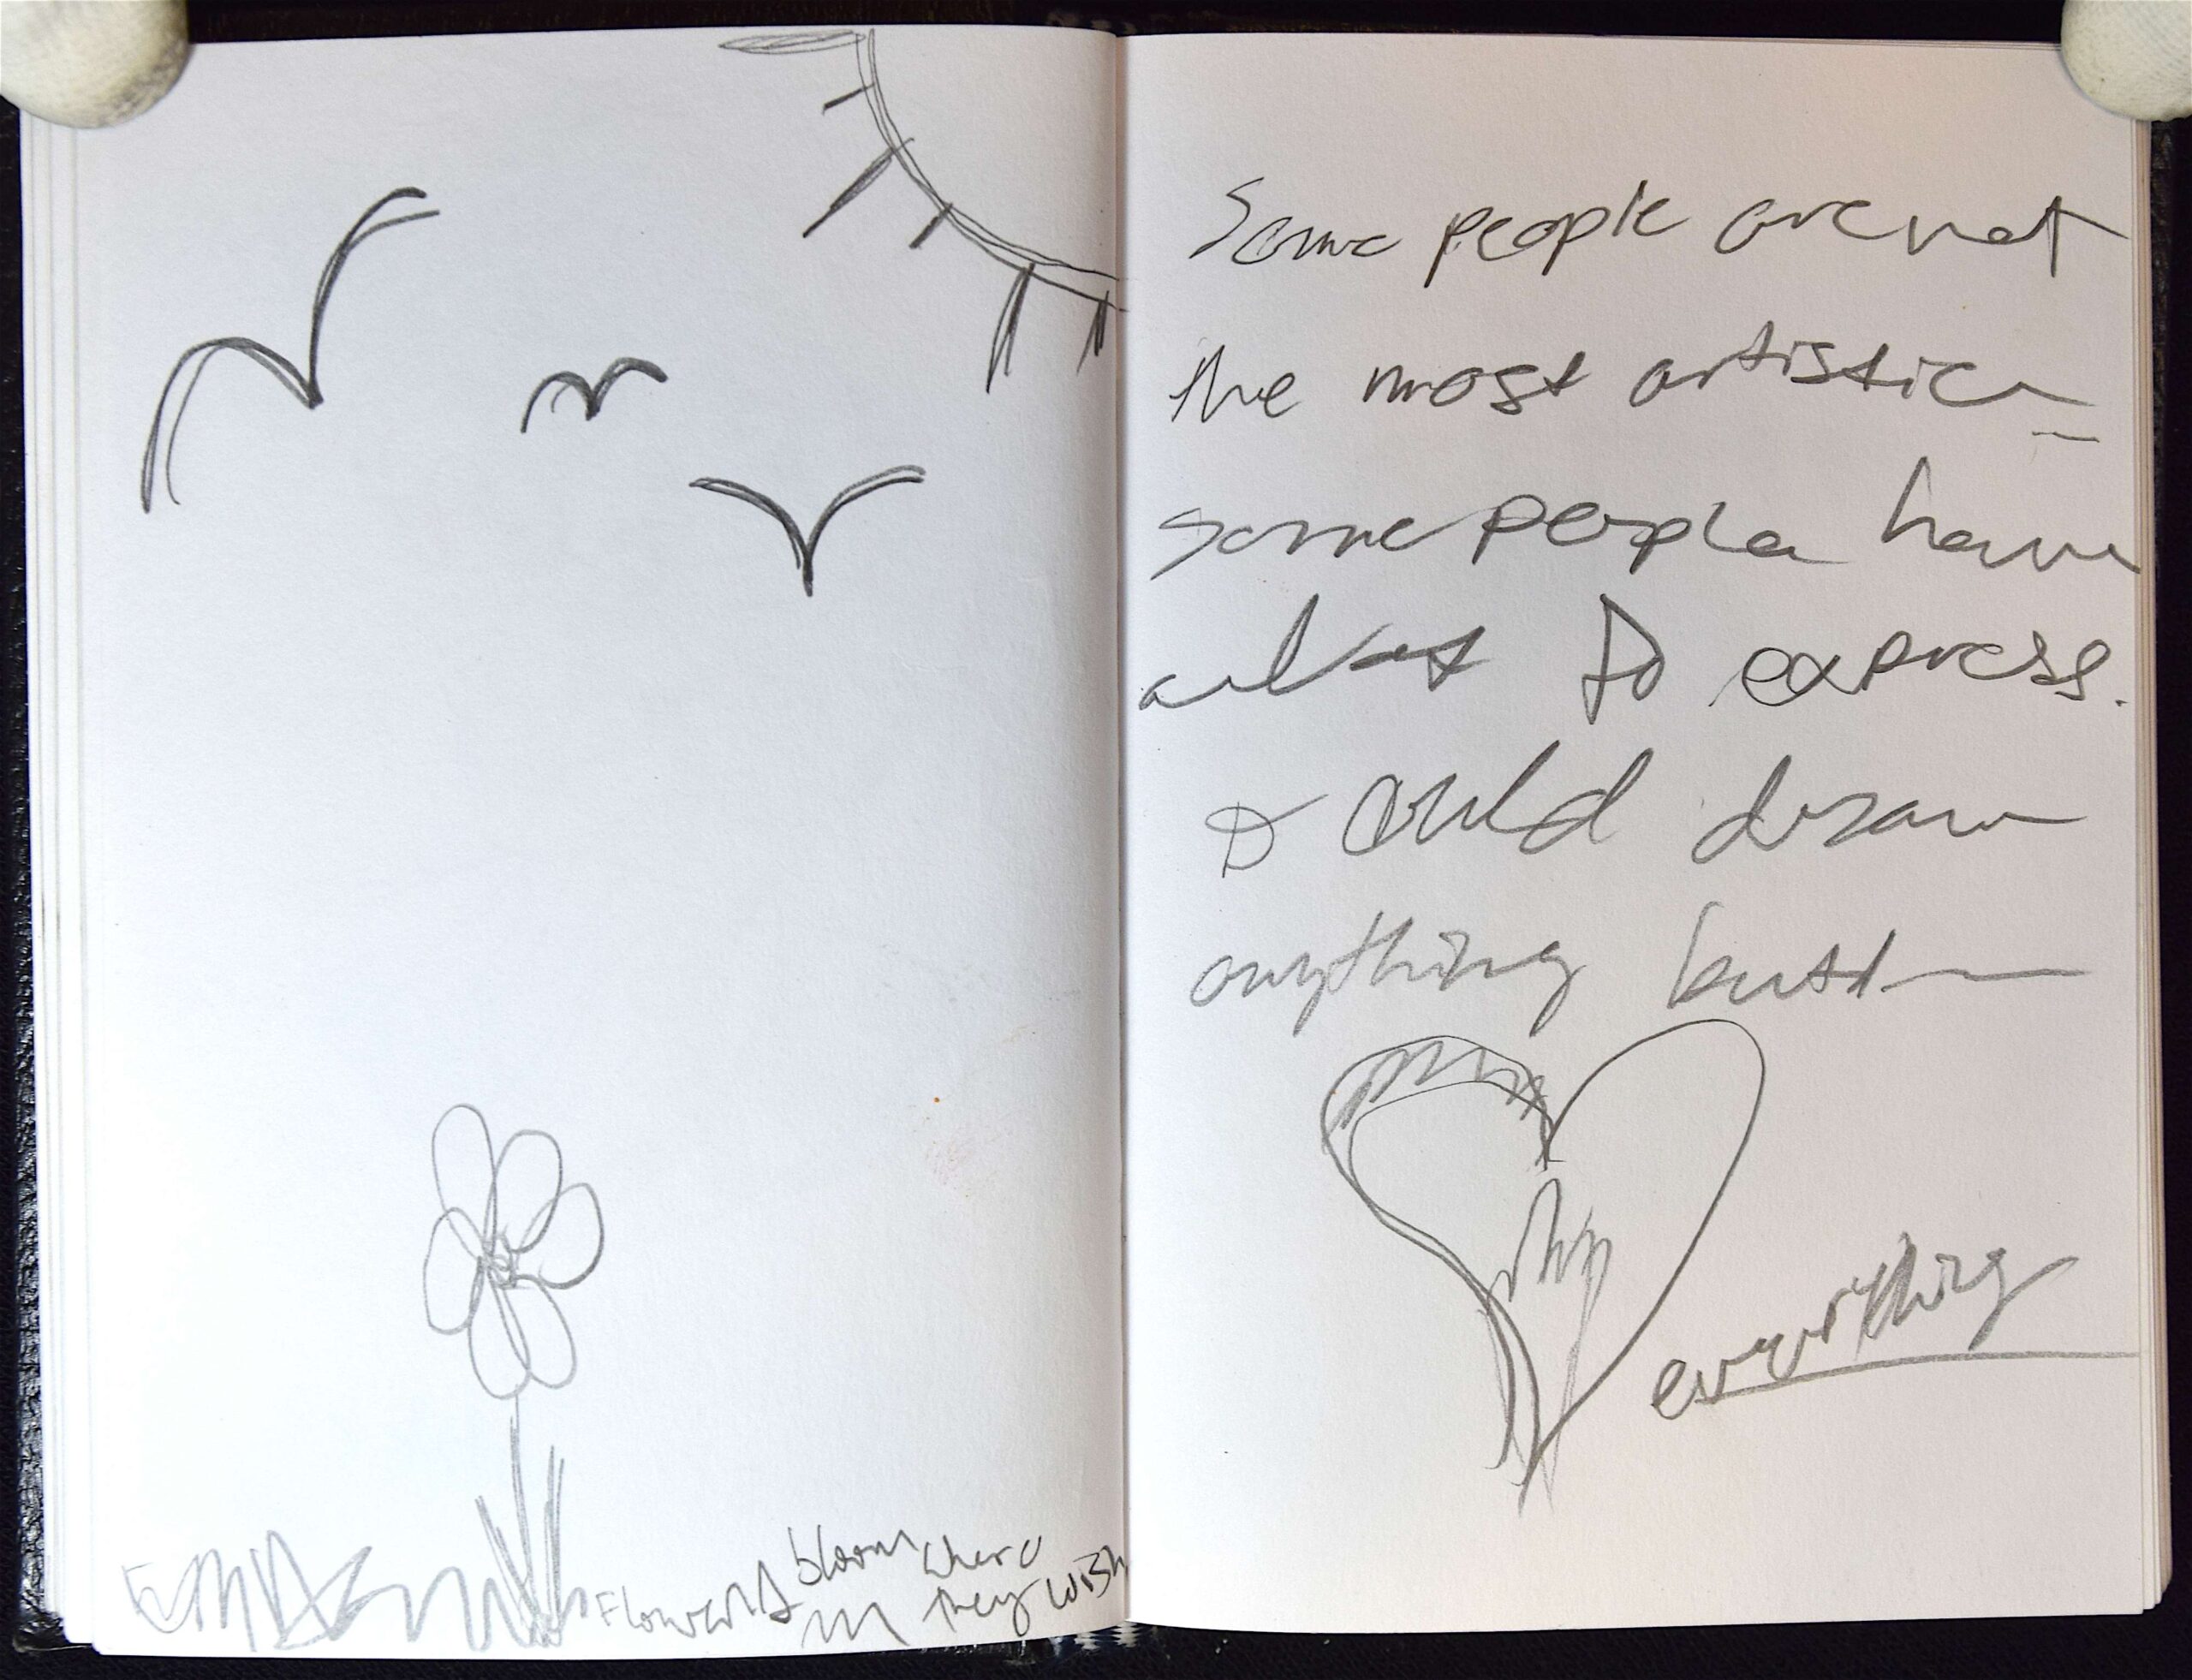 Flowers bloom where
they wish
Some people are not
the most artistic –
some people have
a lot to express.
I could draw
anything but –
everything